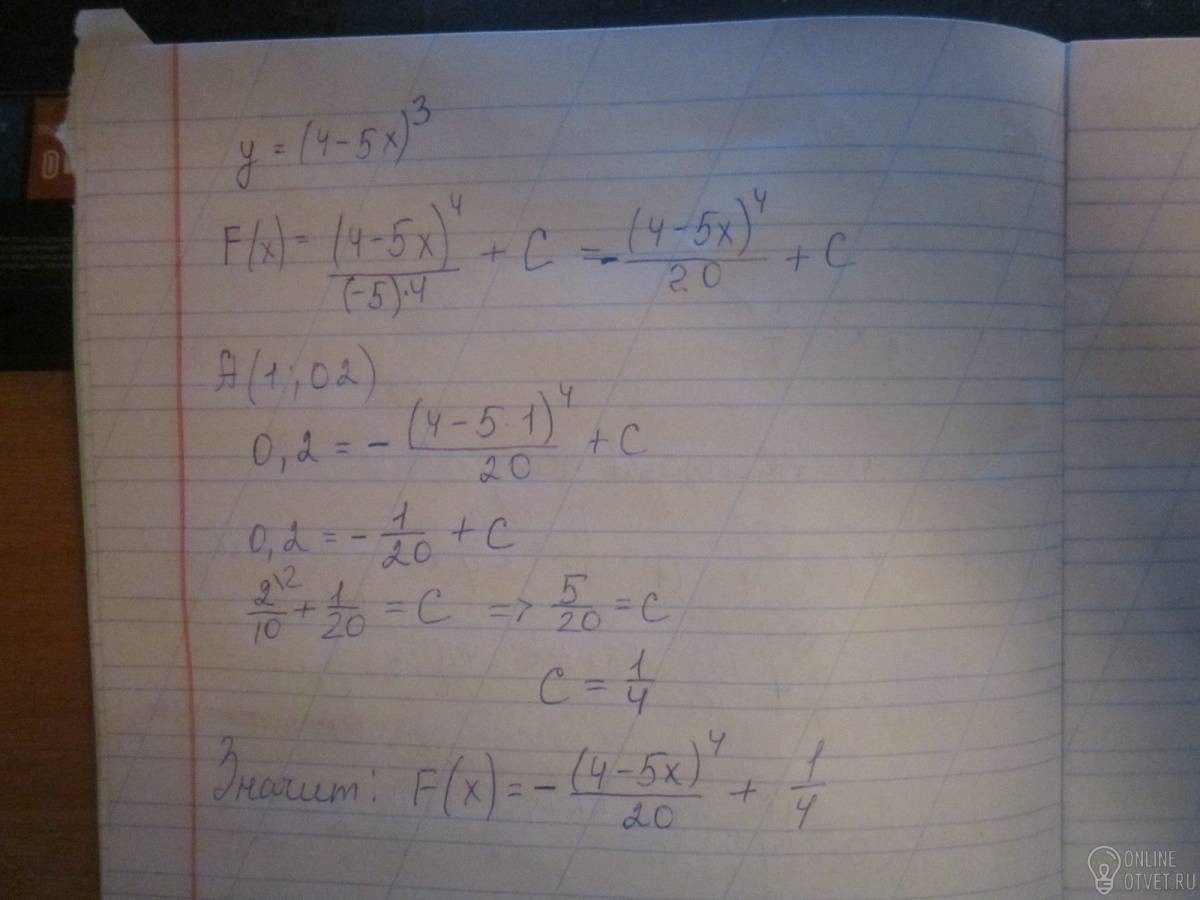 y = (4-5x)^3
F(x) = (4-5x)^4/((-5)·4) + C = -(4-5x)^4/20 + C
A(1; 02)
0,2 = -(4-5·1)^4/20 + C
0,2 = -1/20 + C
2\2/10 + 1/20 = C => 5/20 = C
C = 1/4
Значит: F(x) = -(4-5x)^4/20 + 1/4
ONLINE
OTVET.RU